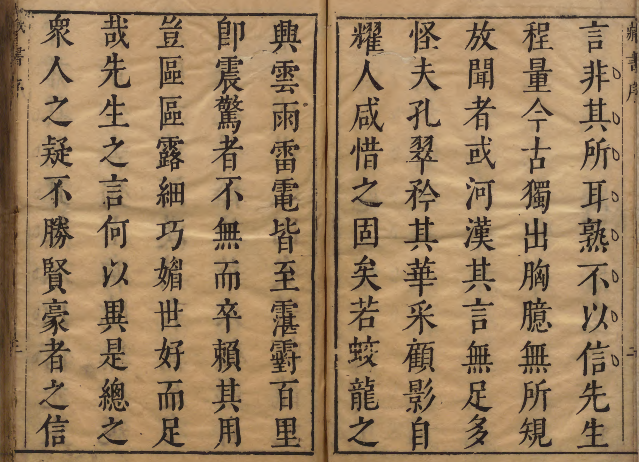 藏書序
言非其所耳熟不以信先生
程量今古獨出胸臆無所規
放聞者或河漢其言無足多
怪夫孔翠矜其華采顧影自
耀人咸惜之固矣若蛟龍之
興雲雨雷電皆至霮䨴百里
即震驚者不無而卒賴其用
豈區區露細巧媚世好而足
哉先生之言何以異是總之
衆人之疑不勝賢豪者之信